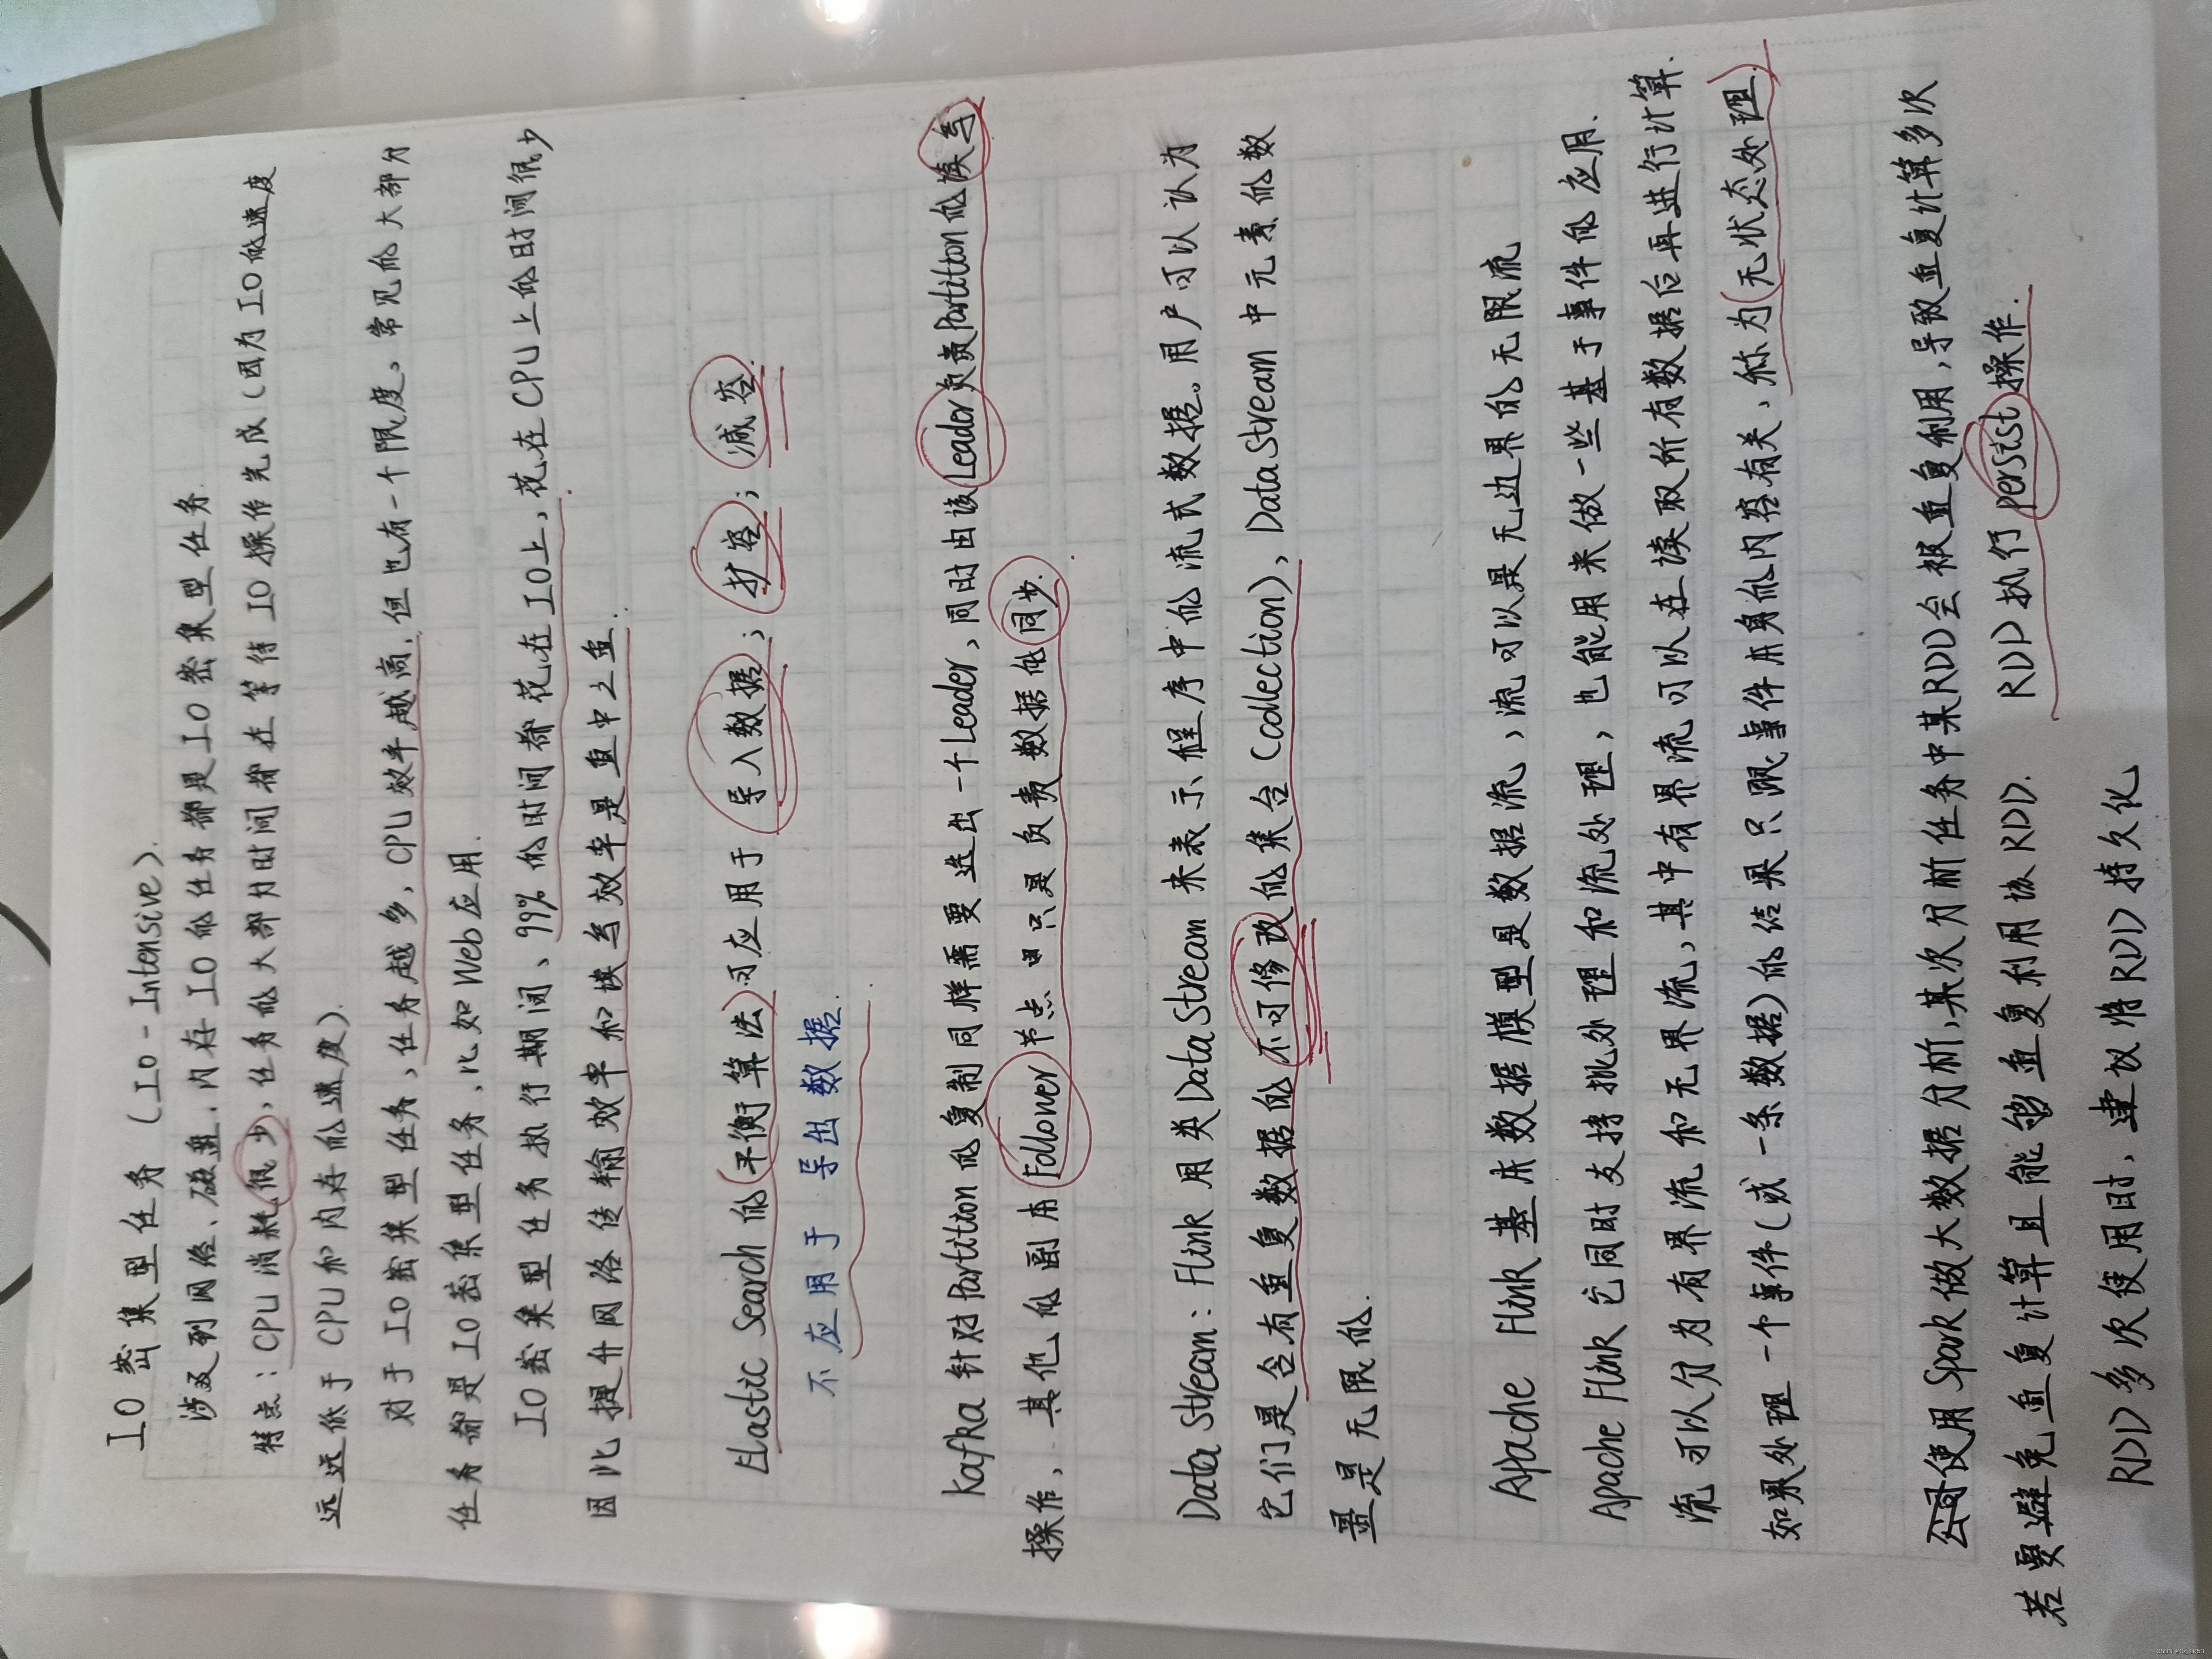 IO 密集型任务 (IO-Intensive).
涉及到网络、磁盘、内存 IO 的任务都是 IO 密集型任务.
特点:CPU 消耗很少,任务的大部分时间都在等待 IO 操作完成(因为 IO 的速度
远远低于 CPU 和内存的速度).
对于 IO 密集型任务,任务越多,CPU 效率越高,但也有一个限度。常见的大部分
任务都是 IO 密集型任务,比如 Web 应用.
IO 密集型任务执行期间、99% 的时间都花在 IO上,花在 CPU 上的时间很少.
因此提升网络传输效率和读写效率是重中之重.
Elastic Search 的(平衡算法)可应用于 导入数据; 扩容; 减容.
不应用于 导出数据.
Kafka 针对 Partition 的复制同样需要选出一个 Leader,同时由该 Leader 负责 Partition 的读写
操作,其他的副本 Follower 节点只是负责数据的同步.
Data Stream: Flink 用类 DataStream 来表示程序中的流式数据。用户可以认为
它们是含有重复数据的不可修改的集合(Collection),DataStream 中元素的数
量是无限的.
Apache Flink 基本数据模型是数据流,流可以是无边界的无限流
Apache Flink 它同时支持批处理和流处理,也能用来做一些基于事件的应用.
流可以分为有界流和无界流,其中有界流可以在读取所有数据后再进行计算.
如果处理一个事件(或一条数据)的结果只跟事件本身的内容有关,称为(无状态处理).
公司使用 Spark 做大数据分析,某次分析任务中某RDD会被重复利用,导致重复计算多次
若要避免重复计算且能够重复利用该 RDD. RDD 执行 persist 操作.
RDD 多次使用时,建议将 RDD 持久化
CSDN